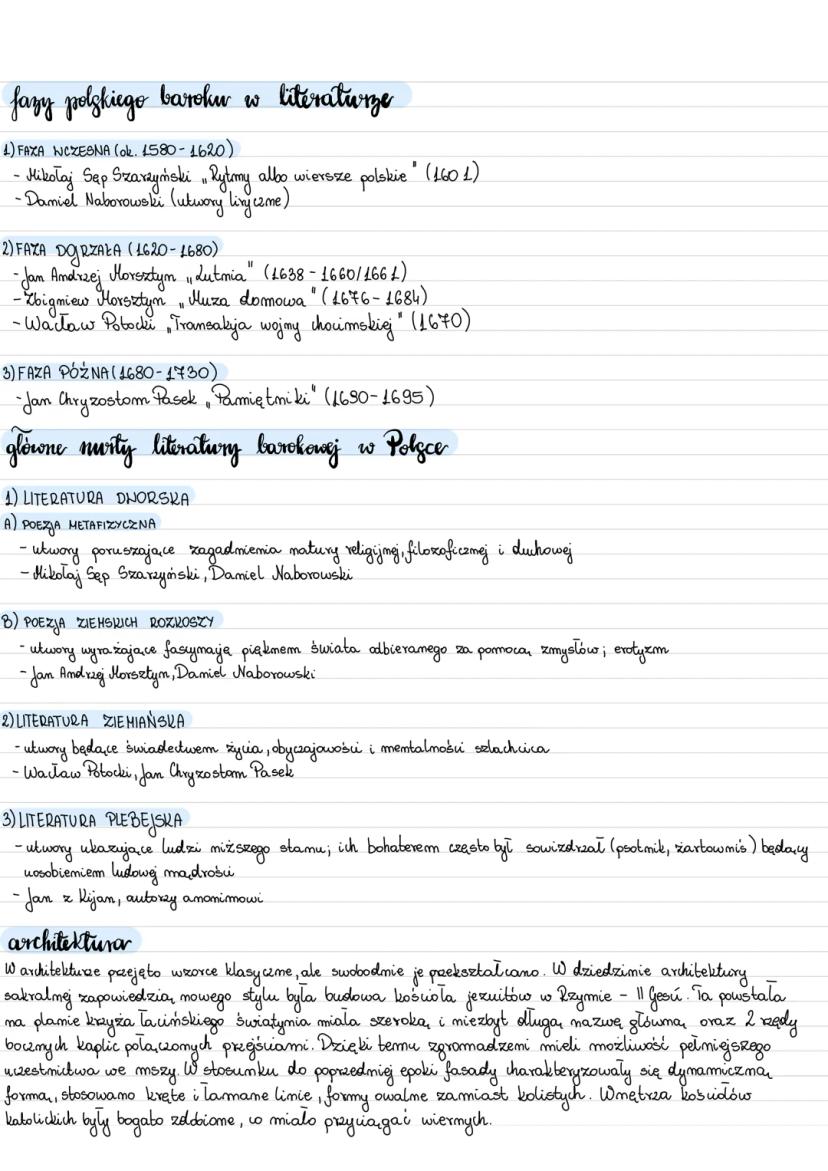 fazy polskiego baroku w literaturze
1) FAZA WCZESNA (ok. 1580 - 1620)
- Mikołaj Sęp Szarzyński „Rytmy albo wiersze polskie" (1601)
- Daniel Naborowski (utwory liryczne)
2) FAZA DOJRZAŁA (1620 - 1680)
- Jan Andrzej Morsztyn „Lutnia" (1638 - 1660/1661)
- Zbigniew Morsztyn „Muza domowa" (1676 - 1684)
- Wacław Potocki „Transakcja wojny chocimskiej" (1670)
3) FAZA PÓŹNA (1680 - 1730)
- Jan Chryzostom Pasek „Pamiętniki" (1690 - 1695)
główne nurty literatury barokowej w Polsce
1) LITERATURA DWORSKA
A) POEZJA METAFIZYCZNA
- utwory poruszające zagadnienia natury religijnej, filozoficznej i duchowej
- Mikołaj Sęp Szarzyński, Daniel Naborowski
B) POEZJA ZIEMSKICH ROZKOSZY
- utwory wyrażające fascynają pięknem świata odbieranego za pomocą zmysłów; erotyzm
- Jan Andrzej Morsztyn, Daniel Naborowski
2) LITERATURA ZIEMIAŃSKA
- utwory będące świadectwem życia, obyczajowości i mentalności szlachcica
- Wacław Potocki, Jan Chryzostom Pasek
3) LITERATURA PLEBEJSKA
- utwory ukazujące ludzi niższego stanu; ich bohaterem często był sowizdrzał (psotnik, żartowniś) będący
uosobieniem ludowej mądrości
- Jan z Kijan, autorzy anonimowi
architektura
W architekturze przejęto wzorce klasyczne, ale swobodnie je przekształcano. W dziedzinie architektury
sakralnej zapowiedzią nowego stylu była budowa kościoła jezuitów w Rzymie - Il Gesú. Ta powstała
na planie krzyża łacińskiego świątynia miała szeroką i niezbyt długą nawę główną oraz 2 rzędy
bocznych kaplic połączonych przejściami. Dzięki temu zgromadzeni mieli możliwość pełniejszego
uczestnictwa we mszy. W stosunku do poprzedniej epoki fasady charakteryzowały się dynamiczną
formą, stosowano kręte i łamane linie, formy owalne zamiast kolistych. Wnętrza kościołów
katolickich były bogato zdobione, co miało przyciągać wiernych.